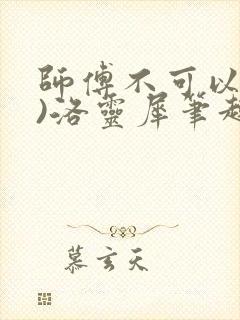 師傅不可以
)洛靈犀筆趣
慕玄天